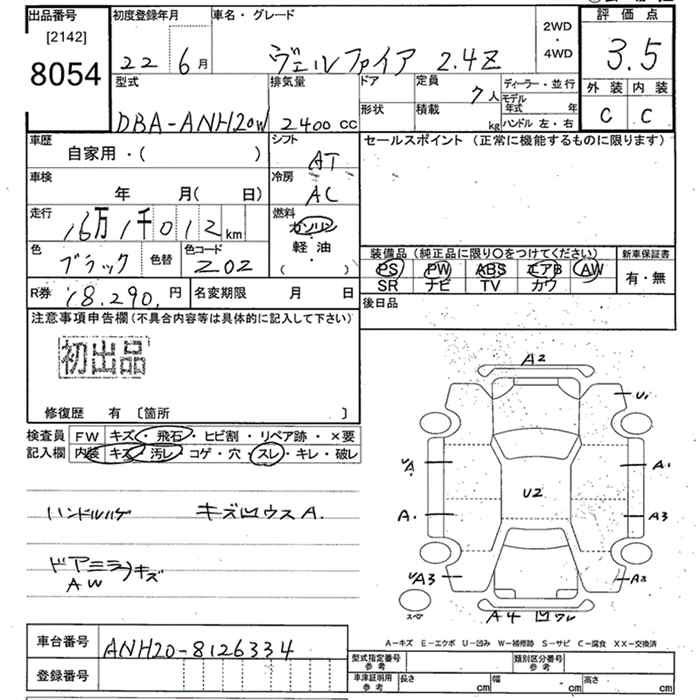 出品番号
[2142]
8054
初度登録年月
22 6月
車名・グレード
ヴェルファイア 2.4Z
2WD
・
4WD
評価点
3.5
外装 内装
C C
型式
DBA-ANH20W
排気量
2400 CC
ドア
形状
定員
7人
積載
kg
ディーラー・並行
モデル年式 年
ハンドル 左・右
車歴
自家用・( )
シフト
AT
セールスポイント (正常に機能するものに限ります)
車検
年 月(日)
冷房
AC
走行
16万1千012km
燃料
ガソリン
軽・油
( )
色
ブラック
色替
色コード
202
装備品 (純正品に限り〇をつけてください)
PS PW ABS エアB AW
SR ナビ TV カワ
新車保証書
有・無
R券
18,290,円
名変期限 月 日
後日品
注意事項申告欄(不具合内容等は具体的に記入して下さい)
初出品
修復歴 有 [箇所 ]
検査員
記入欄
FW キズ・飛石・ヒビ割・リペア跡・×要
内装 キズ・汚レ・コゲ・穴・スレ・キレ・破レ
ハンドルハゲ キズ凹ウスA.
ドアミラーキズ
AW
A2
U1
A1
A3
A2
U2
A.
A3
A4 凹ワレ
スペア
A-キズ E-エクボ U-凹み W-補修跡 S-サビ C-腐食 XX-交換済
車台番号
ANH20-8126334
登録番号
型式指定番号
参考
類別区分番号
参考
車庫証明用
参考
長さ cm 幅 cm 高さ cm